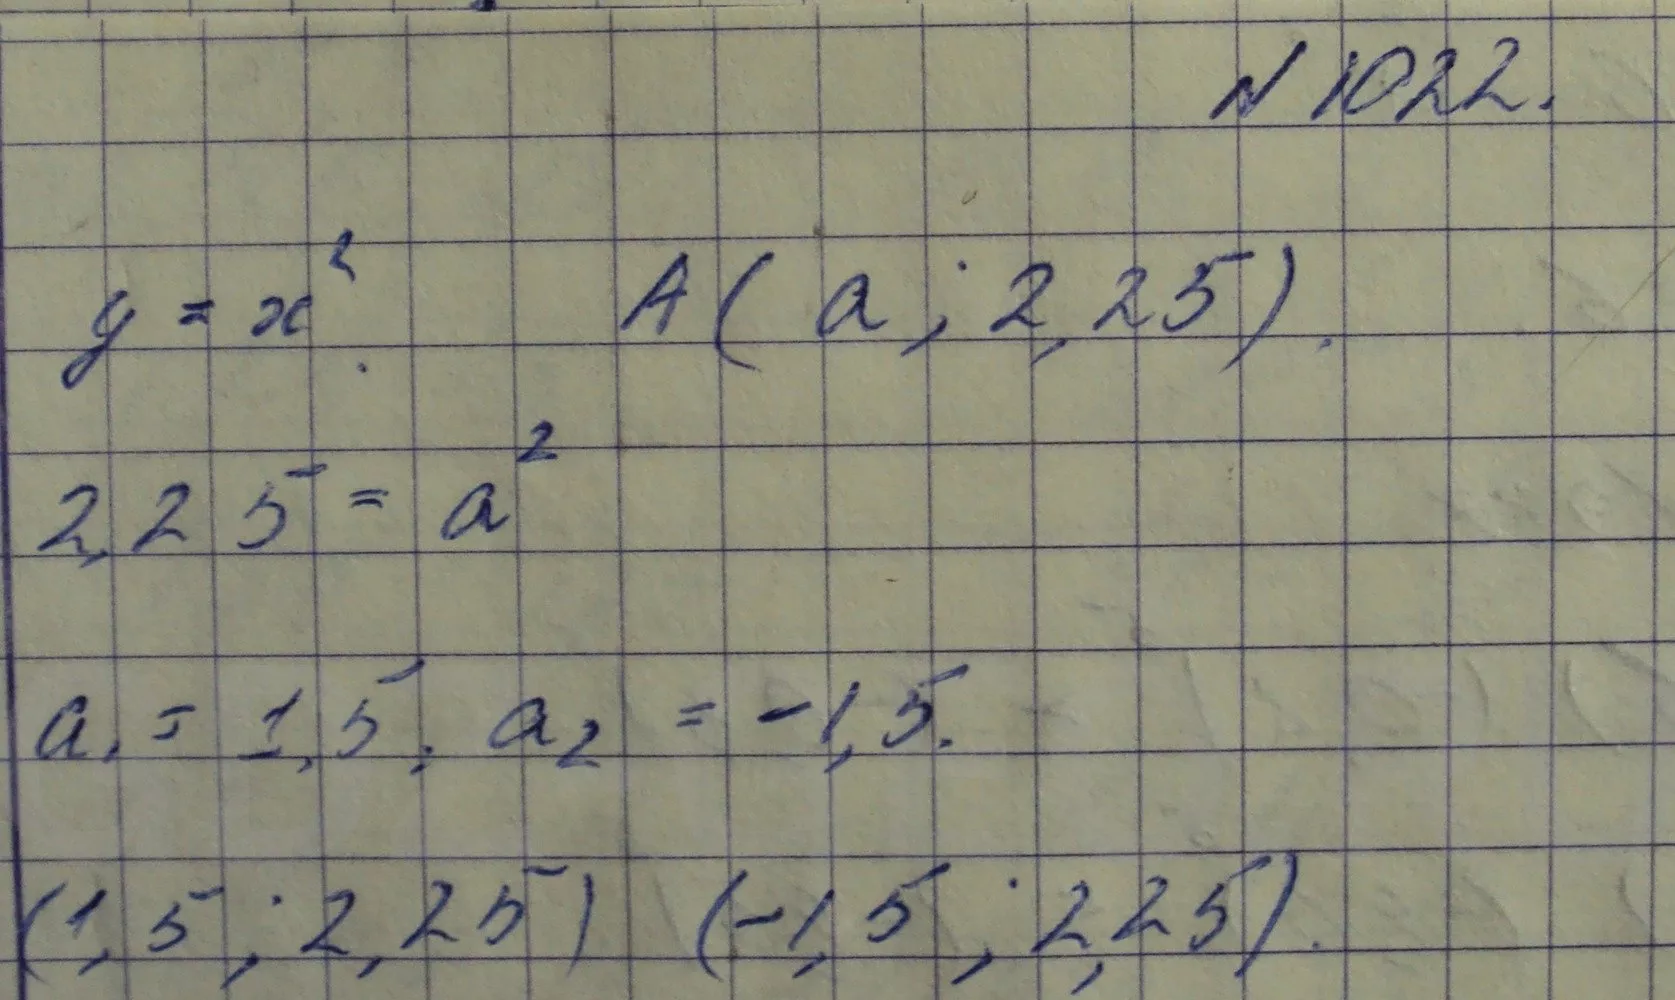 N 1022.
y = x². A(a; 2,25).
2,25 = a²
a₁ = 1,5; a₂ = -1,5.
(1,5; 2,25) (-1,5; 2,25).